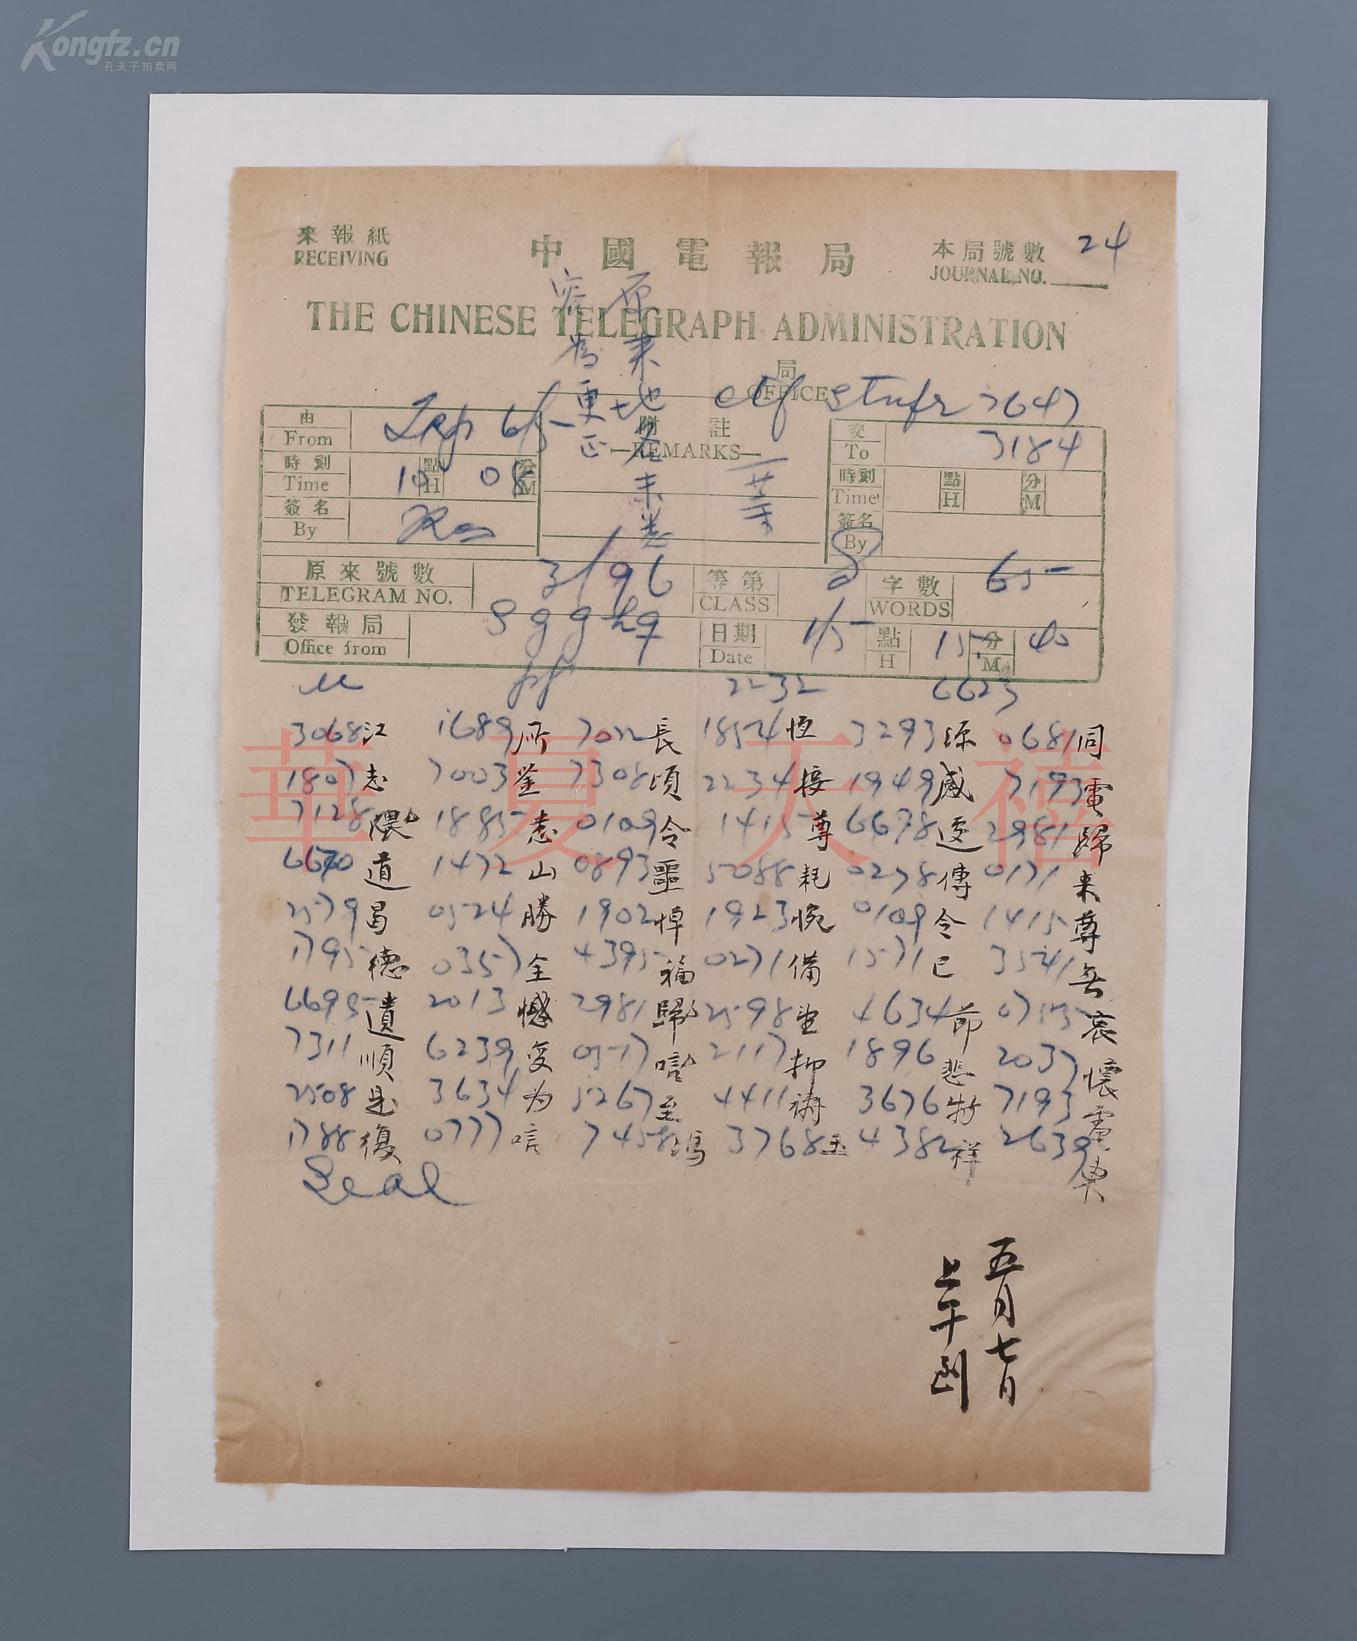 Kongfz.cn
孔夫子拍卖网
來報紙
RECEIVING
中國電報局
本局號數
JOURNAL NO.
24
THE CHINESE TELEGRAPH ADMINISTRATION
局
OFFICE
原来地
為更正
7647
由
From
6/5
附註
REMARKS
交
To
3184
時刻
Time
點
H
分
M
10 08
時刻
Time
點
H
分
M
簽名
By
簽名
By
原來號數
TELEGRAM NO.
3/96
等第
CLASS
字數
WORDS
65
發報局
Office from
日期
Date
1/5
點
H
15
分
M
40
2232 6623
3068江 1689所 7022長 1854恆 3293 0681同
1807志 7003鉴 7308頃 2234接 1949感 7193電
7128隈 1885悉 0109令 1415尊 6678遽 2981歸
6670道 1472山 0893噩 5088耗 0278傳 0171来
2579昌 0524勝 1902悼 1923惋 0109令 1415尊
1795德 0357全 4395福 0271備 1571已 3541無
6695遺 2013憾 2981歸 2598望 4634節 0755哀
7311順 6239变 0517 2117抑 1896悲 2037懷
2508是 3634为 5267至 4411禱 3676特 7193電
1788復 0777唁 7458馮 3768玉 4382祥 2639奥
Seal
五月七日
上午到
華夏天禧